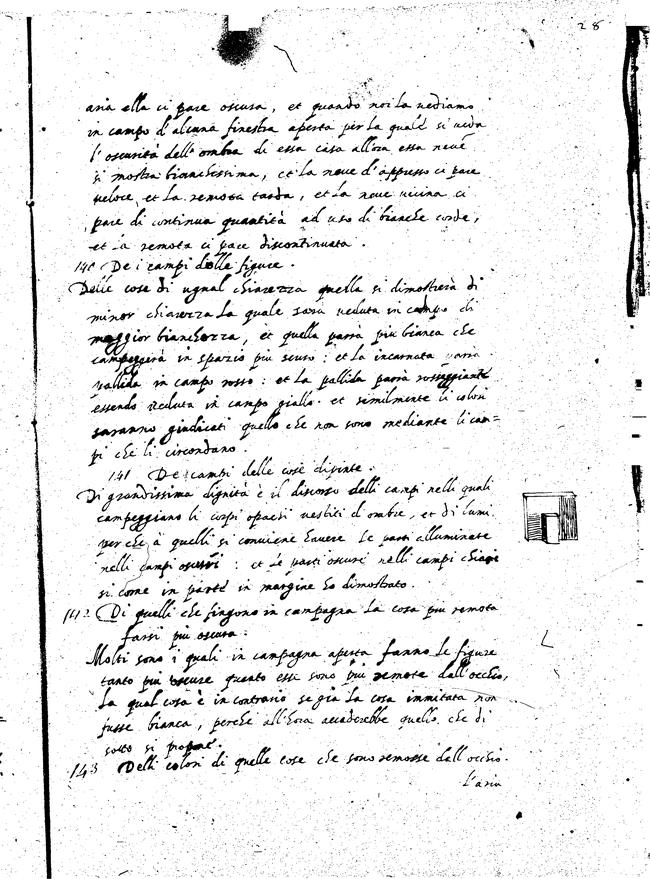 28
aria ella ci pare oscura, et quando noi la vediamo
in campo d'alcuna finestra aperta per la quale si veda
l'oscurità dell'ombra di essa casa allora essa neve
si mostra bianchissima, et la neve d'appresso ci pare
veloce, et la remota tarda, et la neve vicina ci
pare di continua quantità ad uso di bianche corde,
et la remota ci pare discontinuata.
140 De i campi delle figure.
Delle cose di ugual chiarezza quella si dimostrerà di
minor chiarezza la quale sarà veduta in campo di
maggior bianchezza, et quella parrà più bianca che
campeggierà in spazio più scuro: et la incarnata parrà
pallida in campo rosso: et la pallida parrà rosseggiante
essendo veduta in campo giallo. et similmente li colori
saranno giudicati quello che non sono mediante li cam=
pi che li circondano.
141 De i campi delle cose dipinte.
Di grandissima dignità è il discorso delli campi nelli quali
campeggiano li corpi opachi vestiti d'ombre, et di lumi,
perche à quelli si conviene havere le parti alluminate
nelli campi oscuri: et le parti oscure nelli campi chiari
si come in parte in margine ho dimostrato.
142 Di quelli che fingono in campagna la cosa piu remota
farsi piu oscura.
Molti sono i quali in campagna aperta fanno le figure
tanto piu oscure quanto esse sono piu remote dall'occhio,
la qual cosa è in contrario se già la cosa immitata non
fusse bianca, perche all'hora accaderebbe quello che di
sotto si propone.
143 Delli colori di quelle cose che sono remosse dall'occhio.
L'aria